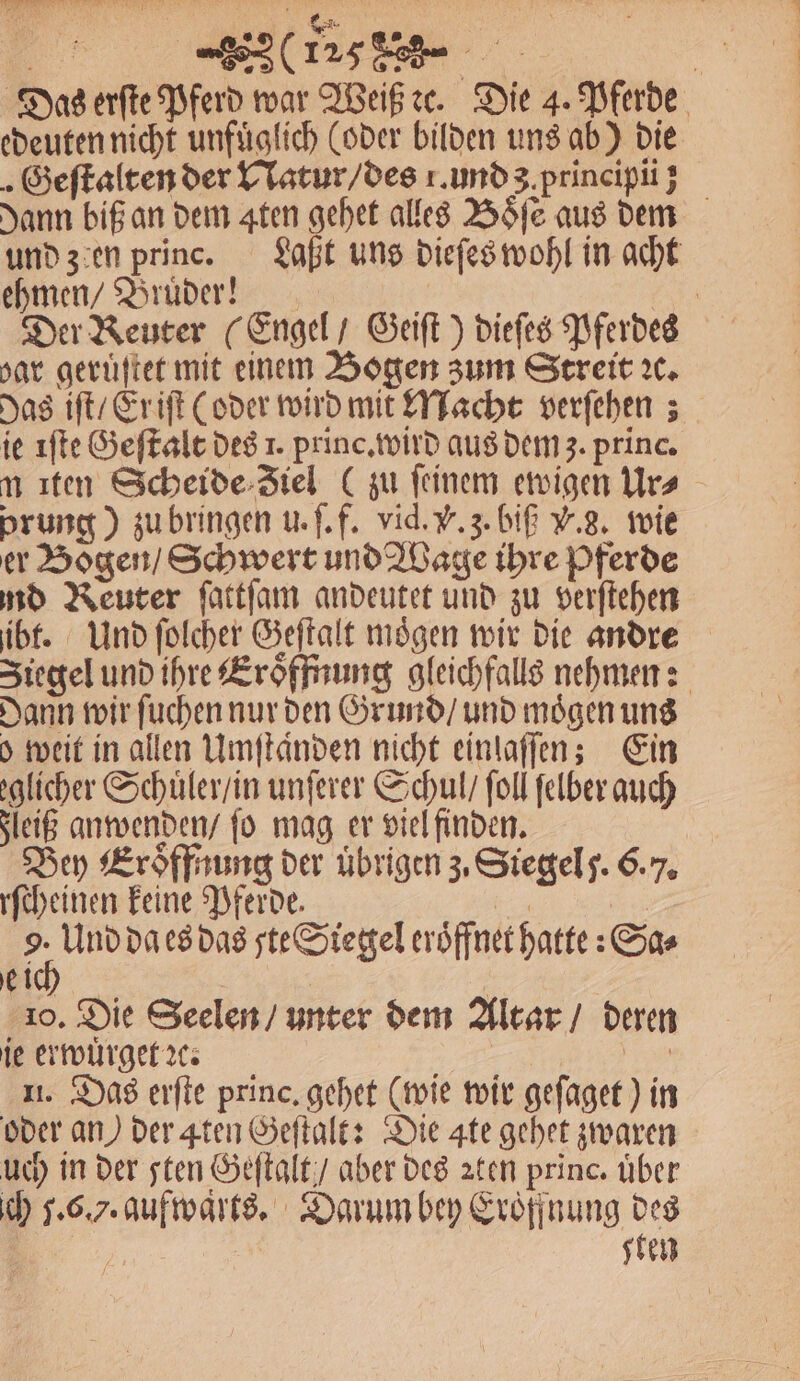 (125
Das erſte Pferd war Weiß ꝛc. Die 4. Pferde
edeuten nicht unfuͤglich (oder bilden uns ab) die
. Geſtalten der Natur/des 1. und 3. principii;
Dann biß an dem 4ten gehet alles Boͤſe aus dem
und 3 en princ. Laßt uns dieſes wohl in acht
ehmen/ Bruͤder!
Der Reuter (Engel / Geiſt) dieſes Pferdes
var geruͤſtet mit einem Bogen zum Streit ꝛc.
Das iſt/ Er iſt (oder wird mit Macht verſehen;
ie 1ſte Geſtalt des 1. princ. wird aus dem 3. princ.
m 1ten Scheide-Ziel (zu ſeinem ewigen Ur-
prung) zu bringen u. ſ. f. vid. V. 3. biß V. 8. wie
er Bogen/ Schwert und Wage ihre Pferde
nd Reuter ſattſam andeutet und zu verſtehen
ibt. Und ſolcher Geſtalt moͤgen wir die andre
Siegel und ihre Eroͤffnung gleichfalls nehmen:
Dann wir ſuchen nur den Grund/ und moͤgen uns
o weit in allen Umſtaͤnden nicht einlaſſen; Ein
eglicher Schuͤler/in unſerer Schul/ ſoll ſelber auch
Fleiß anwenden/ ſo mag er viel finden.
Bey Eroͤffnung der uͤbrigen 3. Siegel 5. 6. 7.
rſcheinen keine Pferde.
9. Und da es das 5te Siegel eroͤffnet hatte: Sa-
e ich
10. Die Seelen / unter dem Altar / deren
ie erwuͤrget ꝛc.
11. Das erſte princ. gehet (wie wir geſaget) in
oder an) der 4ten Geſtalt: Die 4te gehet zwaren
uch in der 5ten Geſtalt / aber des 2ten princ. uͤber
ich 5. 6. 7. aufwaͤrts. Darum bey Eroͤffnung des
5ten